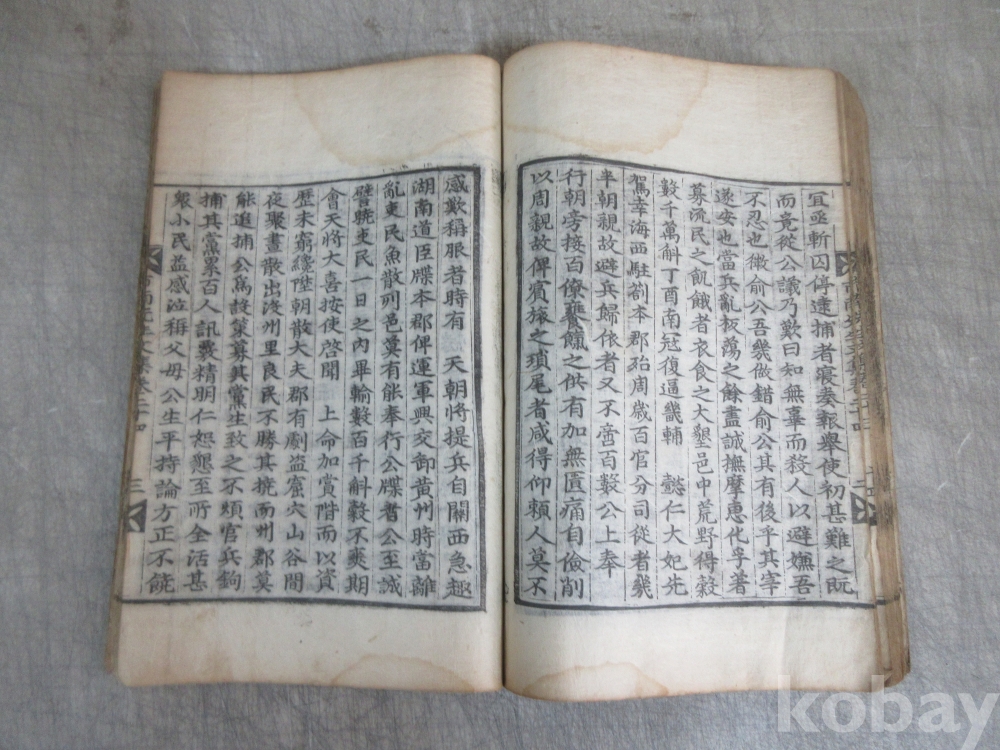 宜亟斬囚停逮捕者寢奏報舉使初甚難之既
而竟從公議乃歎曰知無辜而殺人以避嫌吾
不忍也微俞公吾幾做錯俞公其有後乎其宰
遂安也當兵亂板蕩之餘盡誠撫摩惠化孚著
募流民之飢餓者衣食之大墾邑中荒野得穀
數千萬斛丁酉南冦復逼畿輔 懿仁大妃先
駕幸海西駐劄本郡殆周歲百官分司從者幾
半朝親故避兵歸依者又不啻百數公上奉
行朝旁接百僚饔餼之供有加無匱痛自儉削
以周親故俾賓旅之瑣尾者咸得仰賴人莫不
感歎稱服者時有 天朝將提兵自關西急趣
湖南道臣牒本郡俾運軍興交卸黃州時當離
亂吏民魚散列邑莫有能奉行公牒者公至誠
譬曉吏民一日之內畢輸數百千斛穀不爽期
會天將大喜按使啓聞 上命加賞階而以資
歷未窮纔陞朝散大夫郡有劇盜窟穴山谷間
夜聚晝散出沒州里良民不勝其撓而州郡莫
能追捕公爲設策募其黨生致之不煩官兵鉤
捕其黨累百人訊覈精明仁恕懇至所全活甚
衆小民益感泣稱父母公生平持論方正不饒
三
kobay